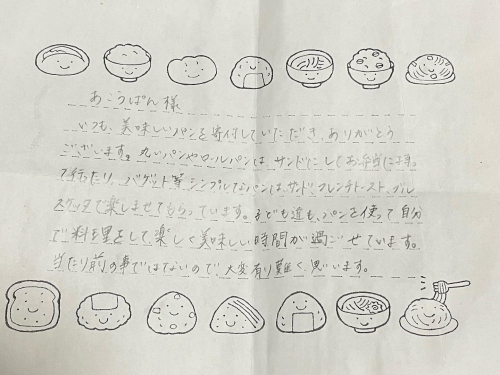 あこうぱん様
いつも、美味しいパンを寄付していただき、ありがとう
ございます。丸いパンやロールパンは、サンドにしてお弁当に持っ
て行ったり、バゲット等シンプルなパンは、サンド、フレンチトースト、ブル
スケッタで楽しませてもらっています。子ども達も、パンを使って自分
で料理をして、楽しく美味しい時間が過ごせています。
当たり前の事ではないので、大変有り難く、思います。